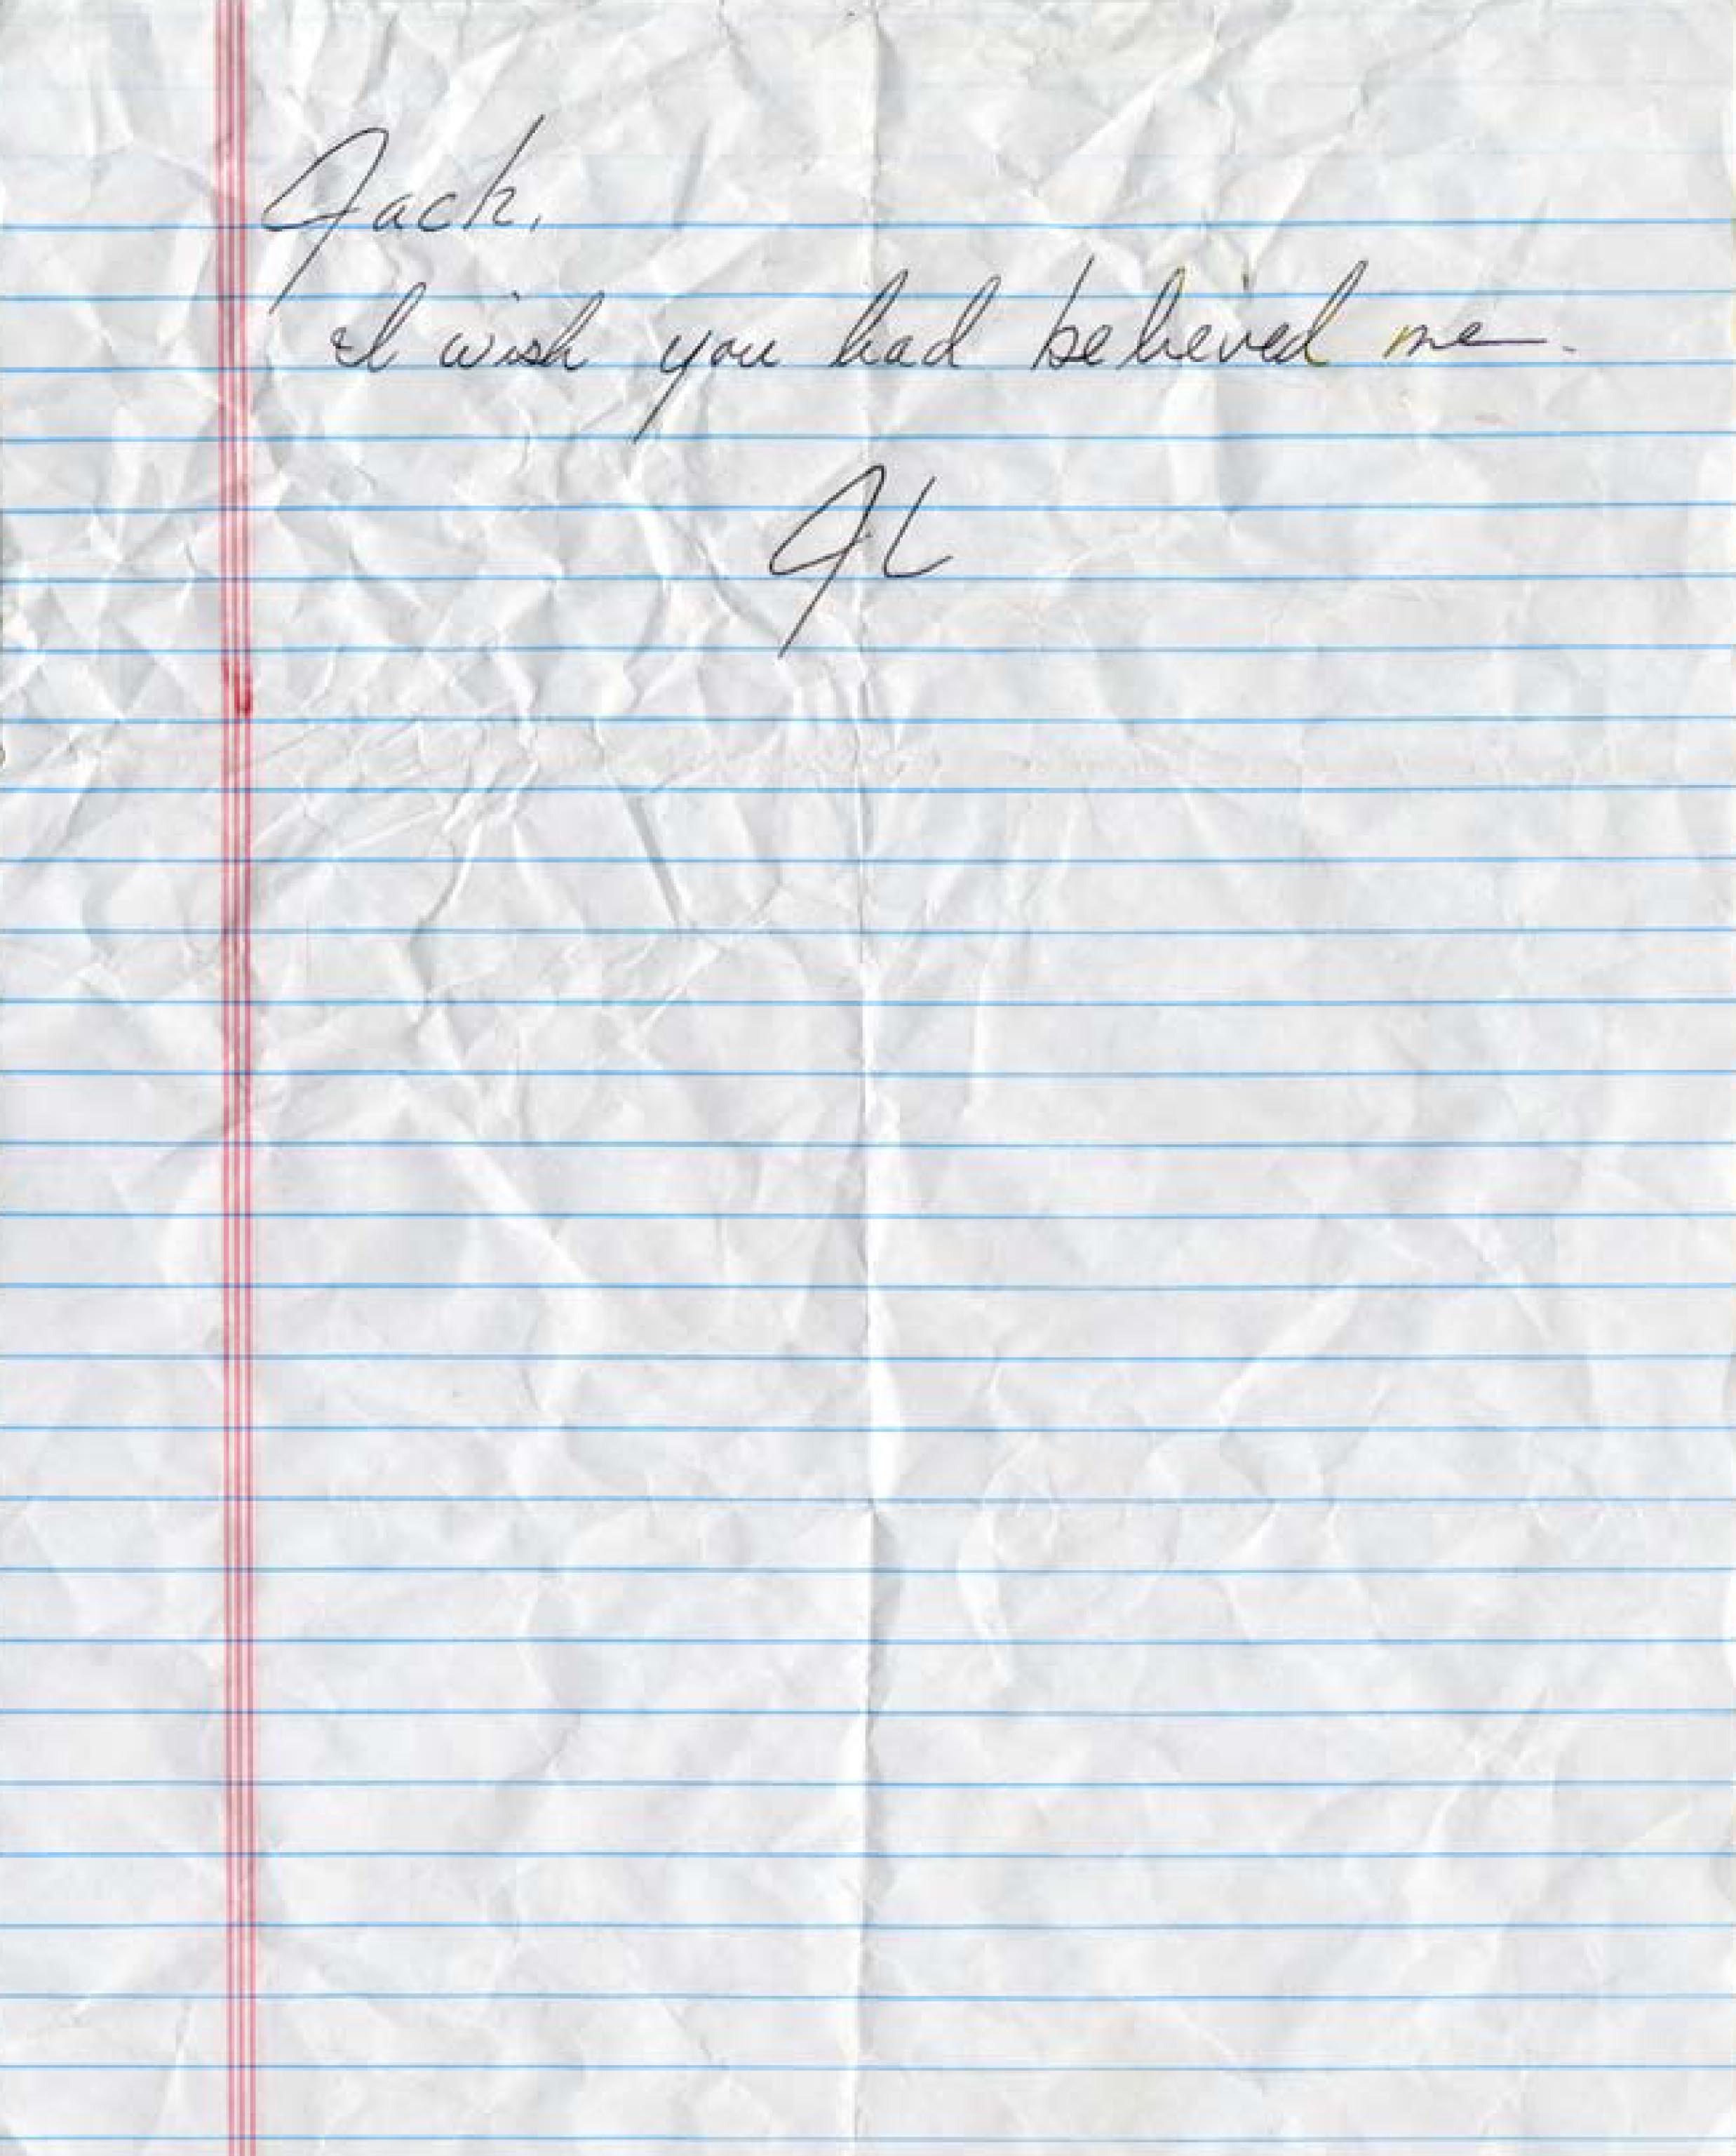 Jack,
I wish you had believed me.
JL